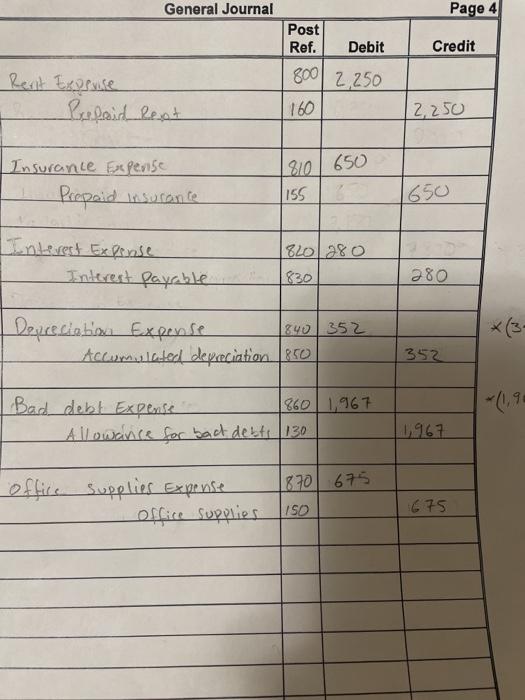 General Journal Page 4
Post Ref. Debit Credit
Rent Expense 800 2,250
Prepaid Rent 160 2,250
Insurance Expense 810 650
Prepaid insurance 155 650
Interest Expense 820 280
Interest payable 830 280
Depreciation Expense 840 352 *(3
Accumulated depreciation 850 352
Bad debt Expense 860 1,967 *(1,9
Allowance for bact debts 130 1,967
office supplies Expense 870 675
office supplies 150 675